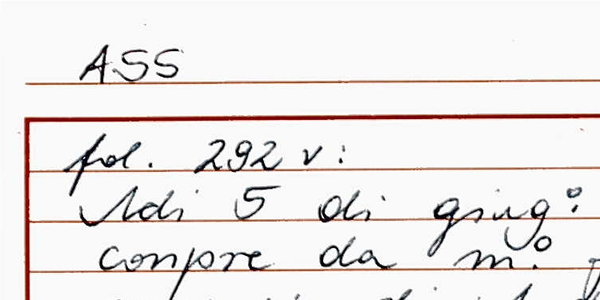 ASS
fol. 292 v:
Adi 5 di giug°:
conpre da m.°